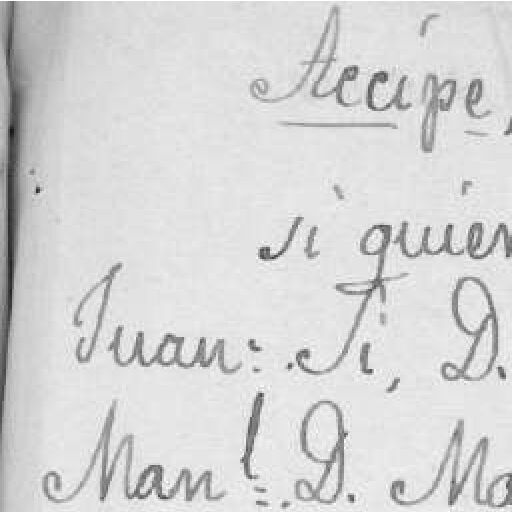 Accipe,
si quier
Juan: . Si, D.
Man.l D. Ma